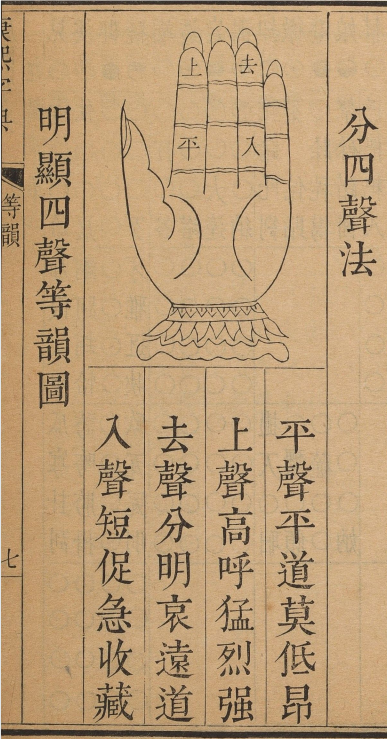 分四聲法
上
去
平
入
平聲平道莫低昂
上聲高呼猛烈强
去聲分明哀遠道
入聲短促急收藏
明顯四聲等韻圖
康熙字典
等韻
七